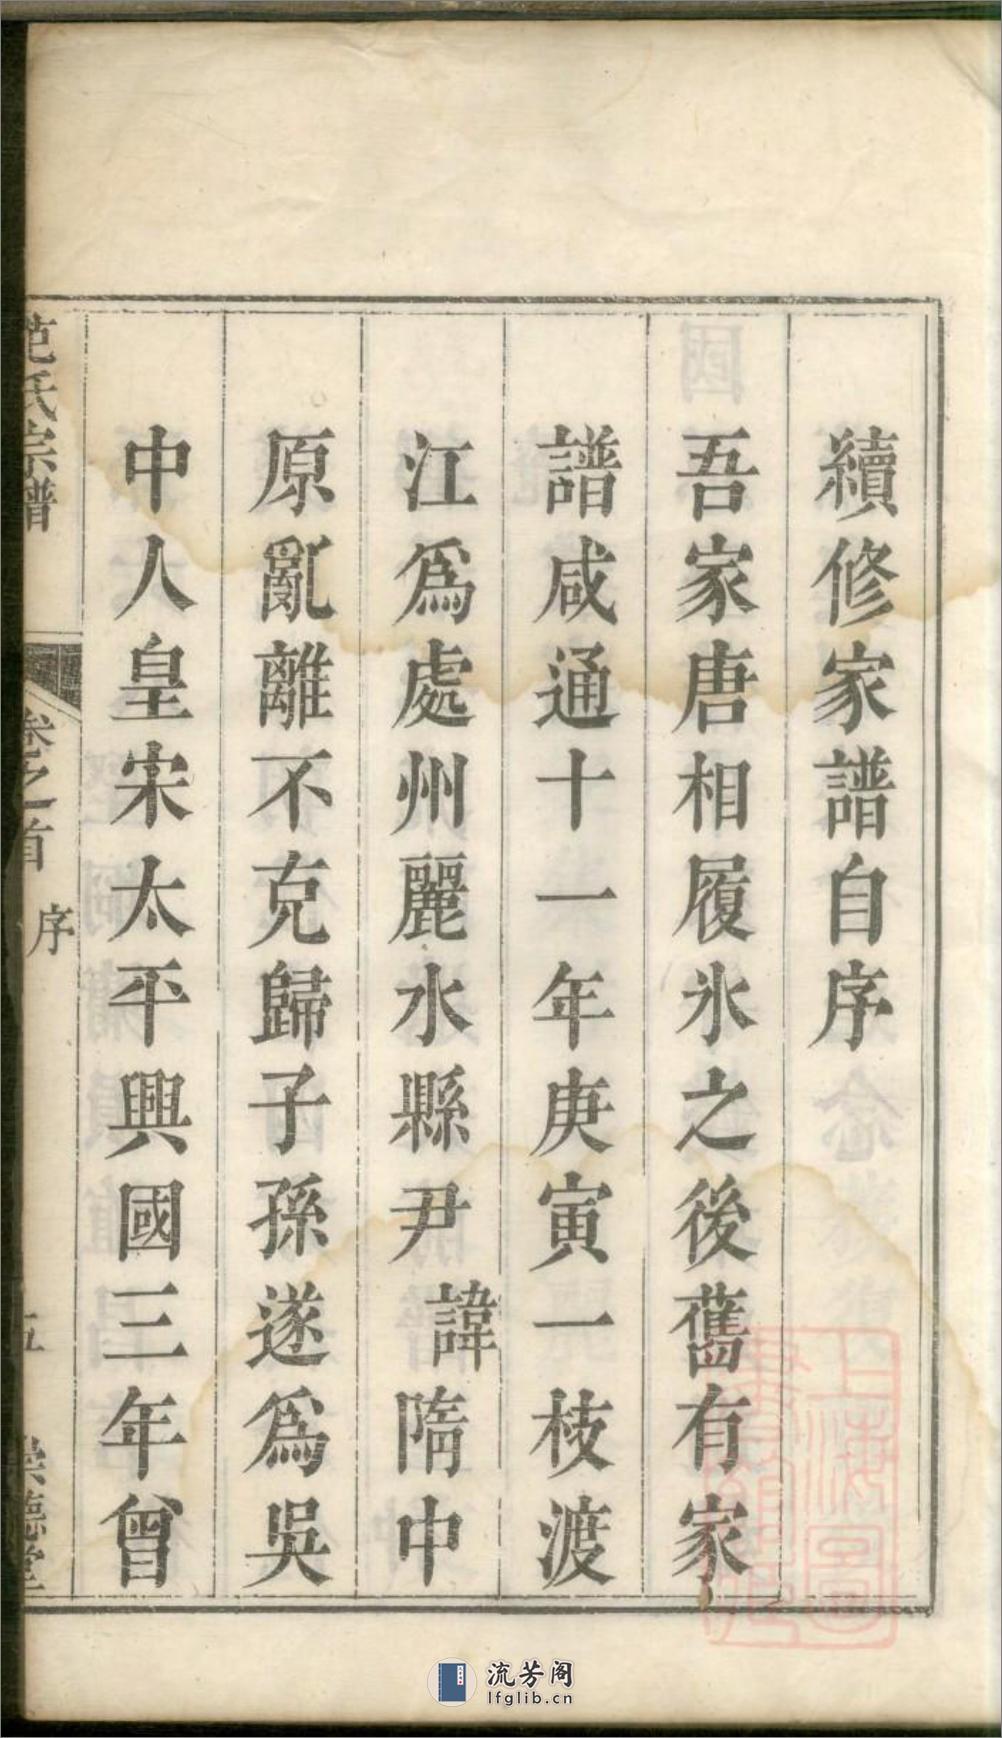 續修家譜自序
吾家唐相履氷之後舊有家
譜咸通十一年庚寅一枝渡
江爲處州麗水縣尹諱隋中
原亂離不克歸子孫遂爲吳
中人皇宋太平興國三年曾
范氏宗譜
卷之首
序
五
崇德堂
上海圖書館藏
流芳阁
lfglib.cn